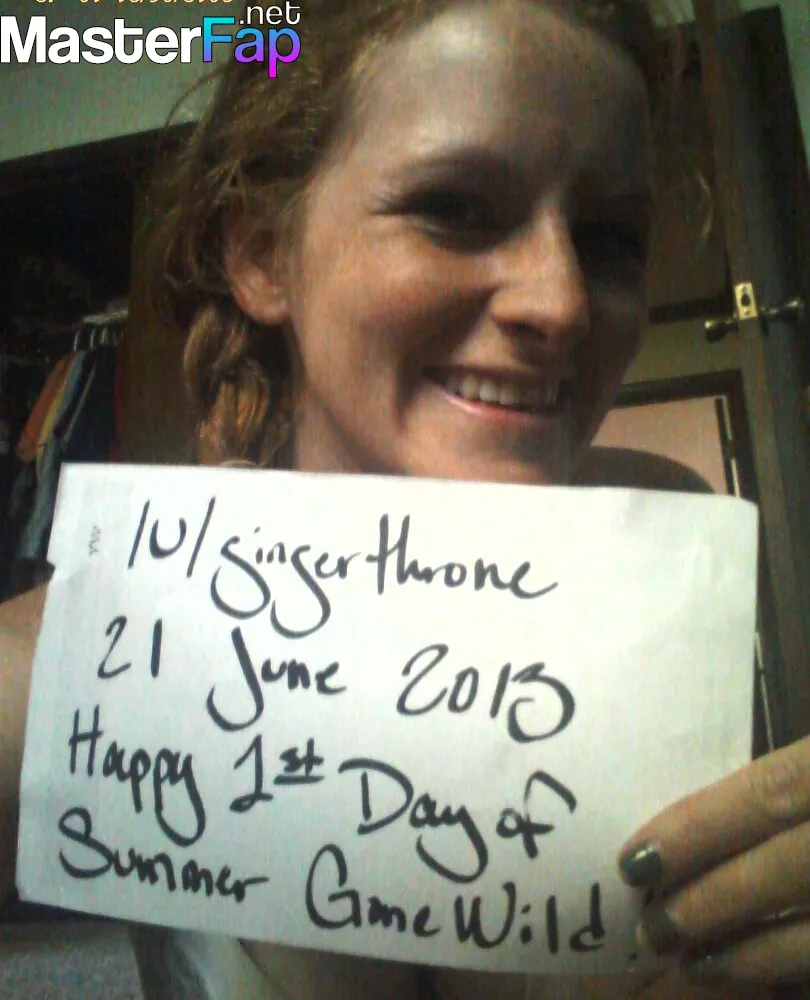 .net
MasterFap
/u/gingerthrone
21 June 2013
Happy 1st Day of
Summer GoneWild!